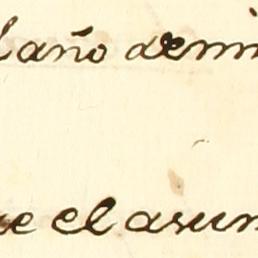 l año de mi
e el asun